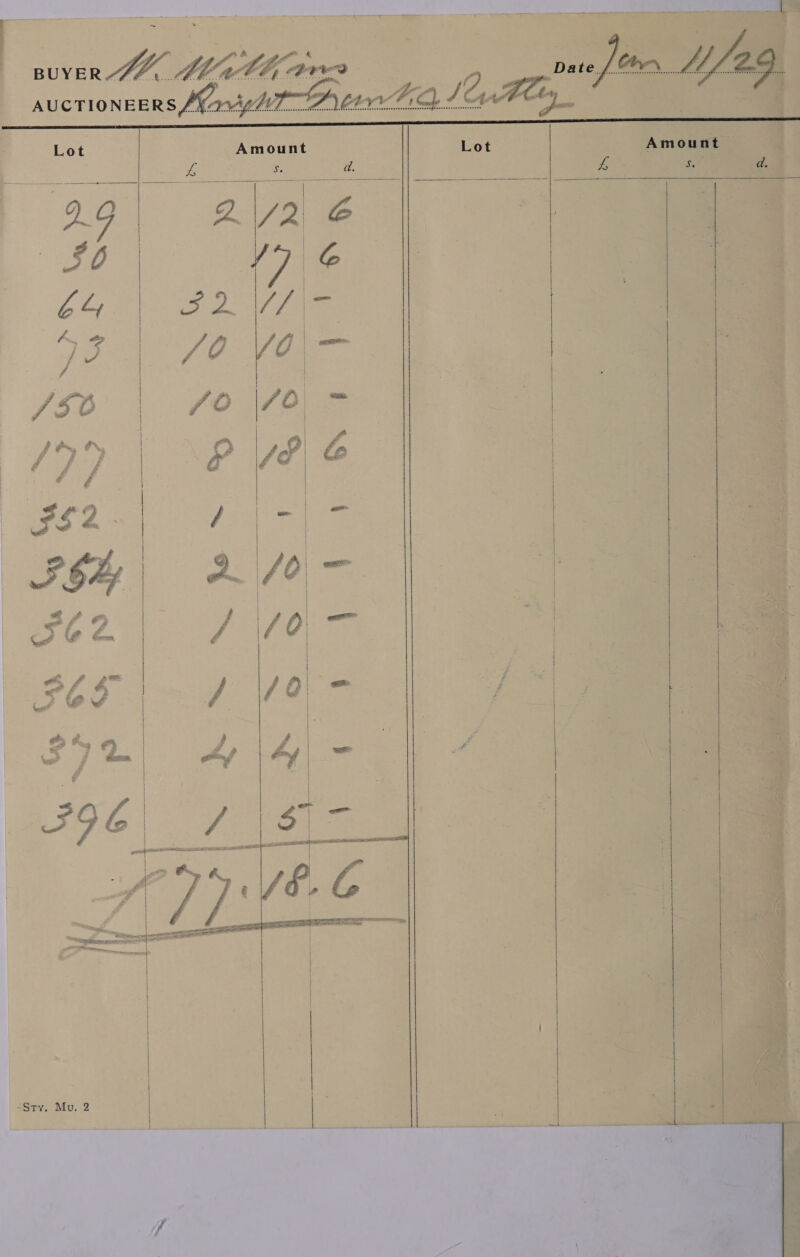 BUYER Date Jan 11/29
AUCTIONEERS Knight Frank & Rutley
Lot Amount Lot Amount
£ s. d. £ s. d.
29 2 12 6
30 17 6
64 32 11 -
73 10 10 -
150 10 10 -
177 8 18 6
352 1 - -
354 2 10 -
362 1 10 -
365 1 10 -
372 4 4 -
396 1 5 -
£77.18.6
-Sty. Mu. 2